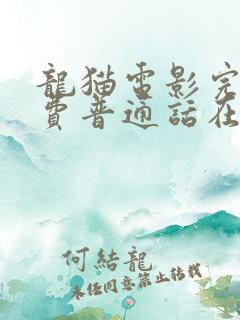 龍猫電影完
費普通話在
何結龍
未经同意禁止转载